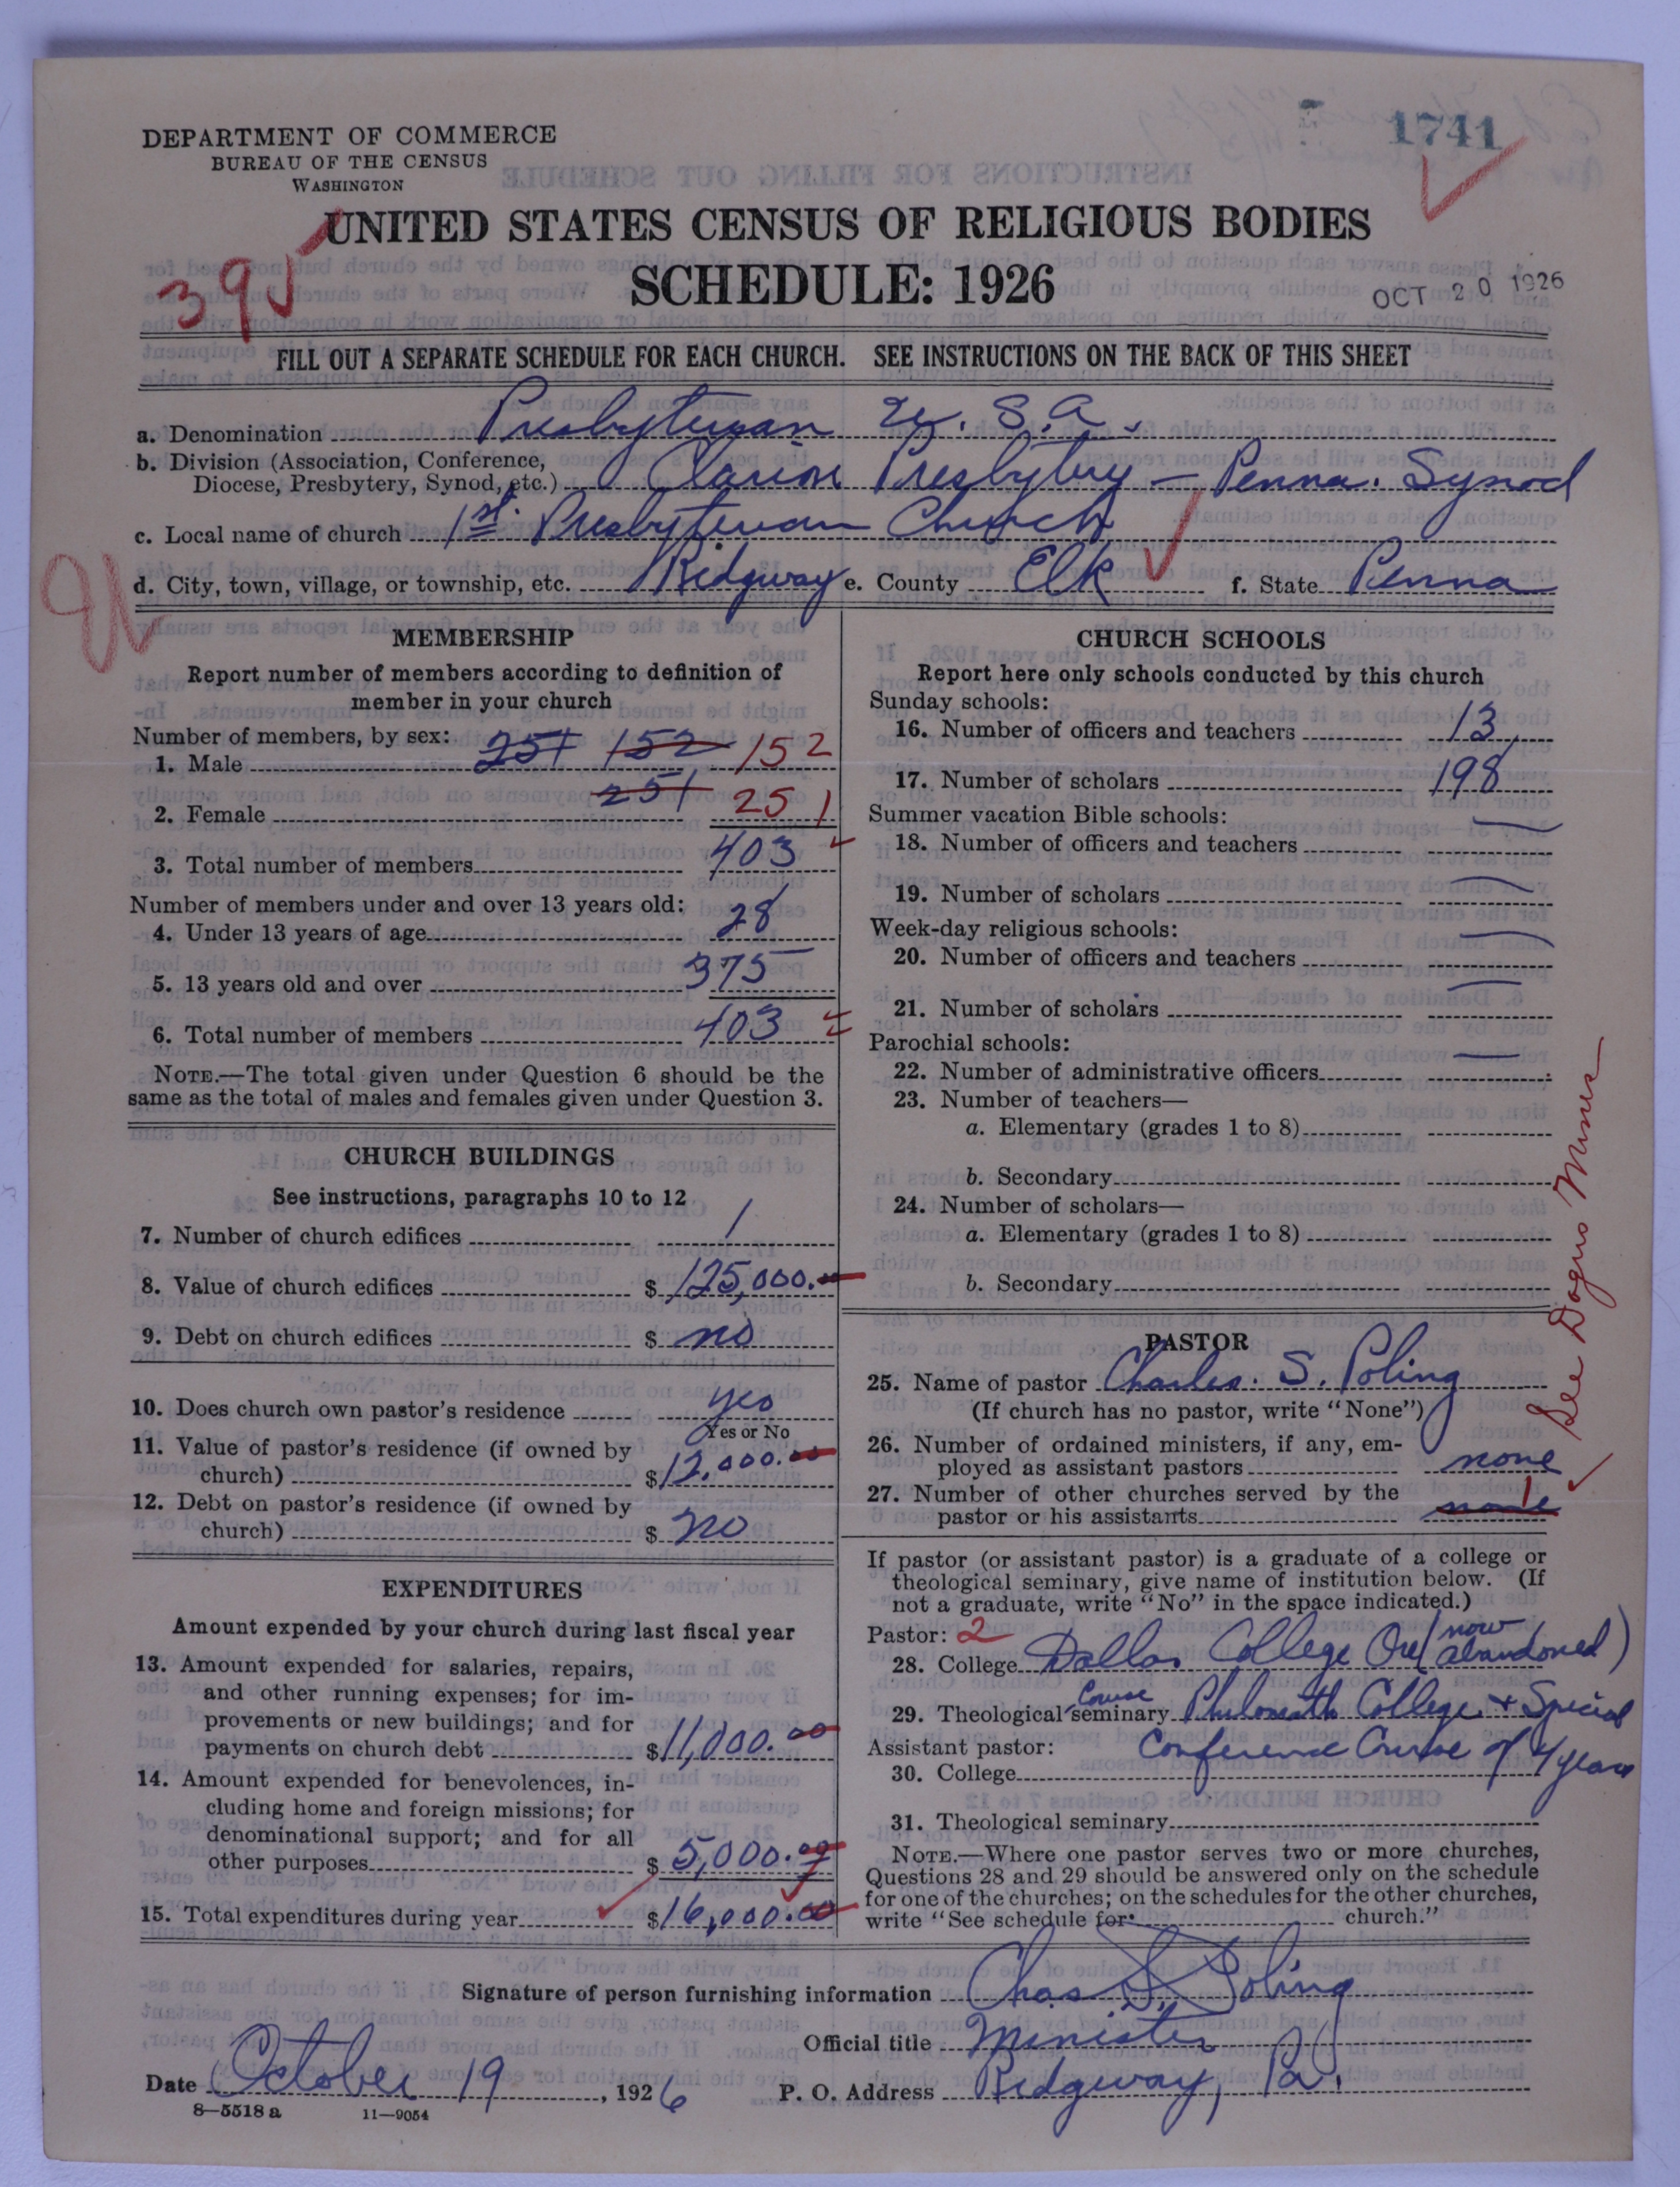 1741
DEPARTMENT OF COMMERCE
BUREAU OF THE CENSUS
WASHINGTON
UNITED STATES CENSUS OF RELIGIOUS BODIES
SCHEDULE: 1926
OCT 20 1926
FILL OUT A SEPARATE SCHEDULE FOR EACH CHURCH. SEE INSTRUCTIONS ON THE BACK OF THIS SHEET
a. Denomination Presbyterian U.S.A.
b. Division (Association, Conference,
Diocese, Presbytery, Synod, etc.) Clarion Presbytery - Penna. Synod
c. Local name of church 1st. Presbyterian Church
d. City, town, village, or township, etc. Ridgway e. County Elk f. State Penna
MEMBERSHIP
Report number of members according to definition of
member in your church
Number of members, by sex:
1. Male 251 152 152
2. Female 251 251
3. Total number of members 403
Number of members under and over 13 years old:
4. Under 13 years of age 28
5. 13 years old and over 375
6. Total number of members 403
NOTE.—The total given under Question 6 should be the
same as the total of males and females given under Question 3.
CHURCH BUILDINGS
See instructions, paragraphs 10 to 12
7. Number of church edifices 1
8. Value of church edifices $ 125,000.00
9. Debt on church edifices $ no
10. Does church own pastor's residence yes
Yes or No
11. Value of pastor's residence (if owned by
church) $ 12,000.00
12. Debt on pastor's residence (if owned by
church) $ no
EXPENDITURES
Amount expended by your church during last fiscal year
13. Amount expended for salaries, repairs,
and other running expenses; for im-
provements or new buildings; and for
payments on church debt $ 11,000.00
14. Amount expended for benevolences, in-
cluding home and foreign missions; for
denominational support; and for all
other purposes $ 5,000.00
15. Total expenditures during year $ 16,000.00
CHURCH SCHOOLS
Report here only schools conducted by this church
Sunday schools:
16. Number of officers and teachers 13
17. Number of scholars 198
Summer vacation Bible schools:
18. Number of officers and teachers —
19. Number of scholars —
Week-day religious schools:
20. Number of officers and teachers —
21. Number of scholars —
Parochial schools:
22. Number of administrative officers —
23. Number of teachers—
a. Elementary (grades 1 to 8)
b. Secondary
24. Number of scholars—
a. Elementary (grades 1 to 8)
b. Secondary
PASTOR
25. Name of pastor Charles. S. Poling
(If church has no pastor, write "None")
26. Number of ordained ministers, if any, em-
ployed as assistant pastors none
27. Number of other churches served by the
pastor or his assistants none 1
See Dagus Mines
If pastor (or assistant pastor) is a graduate of a college or
theological seminary, give name of institution below. (If
not a graduate, write "No" in the space indicated.)
Pastor: 2
28. College Dallas College Ore (now abandoned)
29. Theological seminary Course Philomath College + Special
Assistant pastor: Conference Course of 4 years
30. College
31. Theological seminary
NOTE.—Where one pastor serves two or more churches,
Questions 28 and 29 should be answered only on the schedule
for one of the churches; on the schedules for the other churches,
write "See schedule for church."
Signature of person furnishing information Chas S. Poling
Official title Minister
Date October 19, 1926 P. O. Address Ridgway, Pa.
8—5518a 11—9054